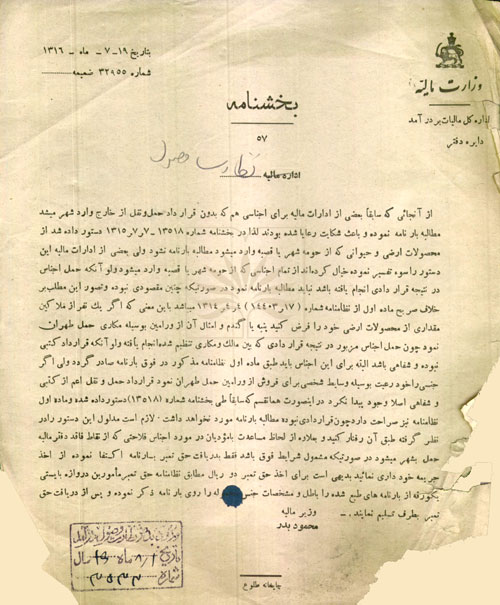 بتاریخ ۱۹ - ۷ - ماه - ۱۳۱۶
شماره ۳۲۹۵۵ ضمیمه
وزارت مالیه
اداره کل مالیات بر درآمد
دایره دفتر
بخشنامه
۵۷
اداره مالیه
از آنجائی که سابقاً بعضی از ادارات مالیه برای اجناسی هم که بدون قرار داد حمل ونقل از خارج وارد شهر میشد
مطالبه بارنامه نموده و باعث شکایت رعایا شده بودند لذا در بخشنامه شماره ۱۳۵۱۸ – ۷ر۷ر۱۳۱۵ دستور داده شد از
محصولات ارضی و حیوانی که از حومه شهر یا قصبه وارد میشود مطالبه بارنامه نشود ولی بعضی از ادارات مالیه این
دستور را سوء تفسیر نموده خیال کرده‌اند از تمام اجناسی که از حومه شهر یا قصبه وارد میشود ولو آنکه حمل اجناس
در نتیجه قرار دادی انجام یافته باشد نباید مطالبه بارنامه نمود در صورتیکه چنین مقصودی نبوده وتصور این مطلب بر
خلاف صریح ماده اول از نظامنامه شماره (۱۷ر۱۴۴۰۳) ۴ر۴ر۱۳۱۴ میباشد باین معنی که اگر یک نفر از ملاکین
مقداری از محصولات ارضی خود را فرض کنید پنبه یا گندم و امثال آن از ورامین بوسیله مکاری حمل طهران
نمود چون حمل اجناس مزبور در نتیجه قرار دادی که بین مالک ومکاری تنظیم شده انجام یافته ولو آنکه قرارداد کتبی
نبوده و شفاهی باشد البته برای این اجناس باید طبق ماده اول نظامنامه مذکور در فوق بارنامه صادر گردد ولی اگر
جنسی را خود رعیت بوسیله وسایط شخصی برای فروش از ورامین حمل طهران نمود قرارداد حمل و نقل اعم از کتبی
و شفاهی اصلا وجود پیدا نکرده در اینصورت همانقسم که سابقاً طی بخشنامه شماره (۱۳۵۱۸) دستور داده شده و ماده اول
نظامنامه نیز صراحت دارد چون قراردادی نبوده مطالبه بارنامه مورد نخواهد داشت. لازم است مدلول این دستور را در
نظر گرفته طبق آن رفتار کنید و بعلاوه از لحاظ مساعدت بامؤدیان در مورد اجناس فلاحتی که از نقاط فاقد دفتر مالیه
حمل بشهر میشود در صورتیکه مشمول شرایط فوق باشد فقط بدریافت حق تمبر بارنامه اکتفا نموده از اخذ
جریمه خود داری نمائید بدیهی است برای اخذ حق تمبر دو ریال مطابق نظامنامه حق تمبر مأمورین دروازه بایستی
یکورقه از بارنامه های طبع شده را باطل و مشخصات جنس را روی بارنامه ذکر نموده و پس از دریافت حق
تمبر بطرف تسلیم نمایند. –
وزیر مالیه
محمود بدر
تاریخ ۸/۱ ماه سال
شماره
چاپخانه طلوع